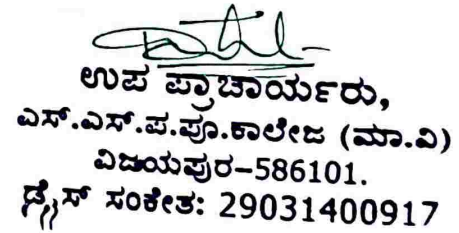 ಉಪ ಪ್ರಾಚಾರ್ಯರು,
ಎಸ್.ಎಸ್.ಪ.ಪೂ.ಕಾಲೇಜ (ಮಾ.ವಿ)
ವಿಜಯಪುರ-586101.
ಡೈಸ್ ಸಂಕೇತ: 29031400917